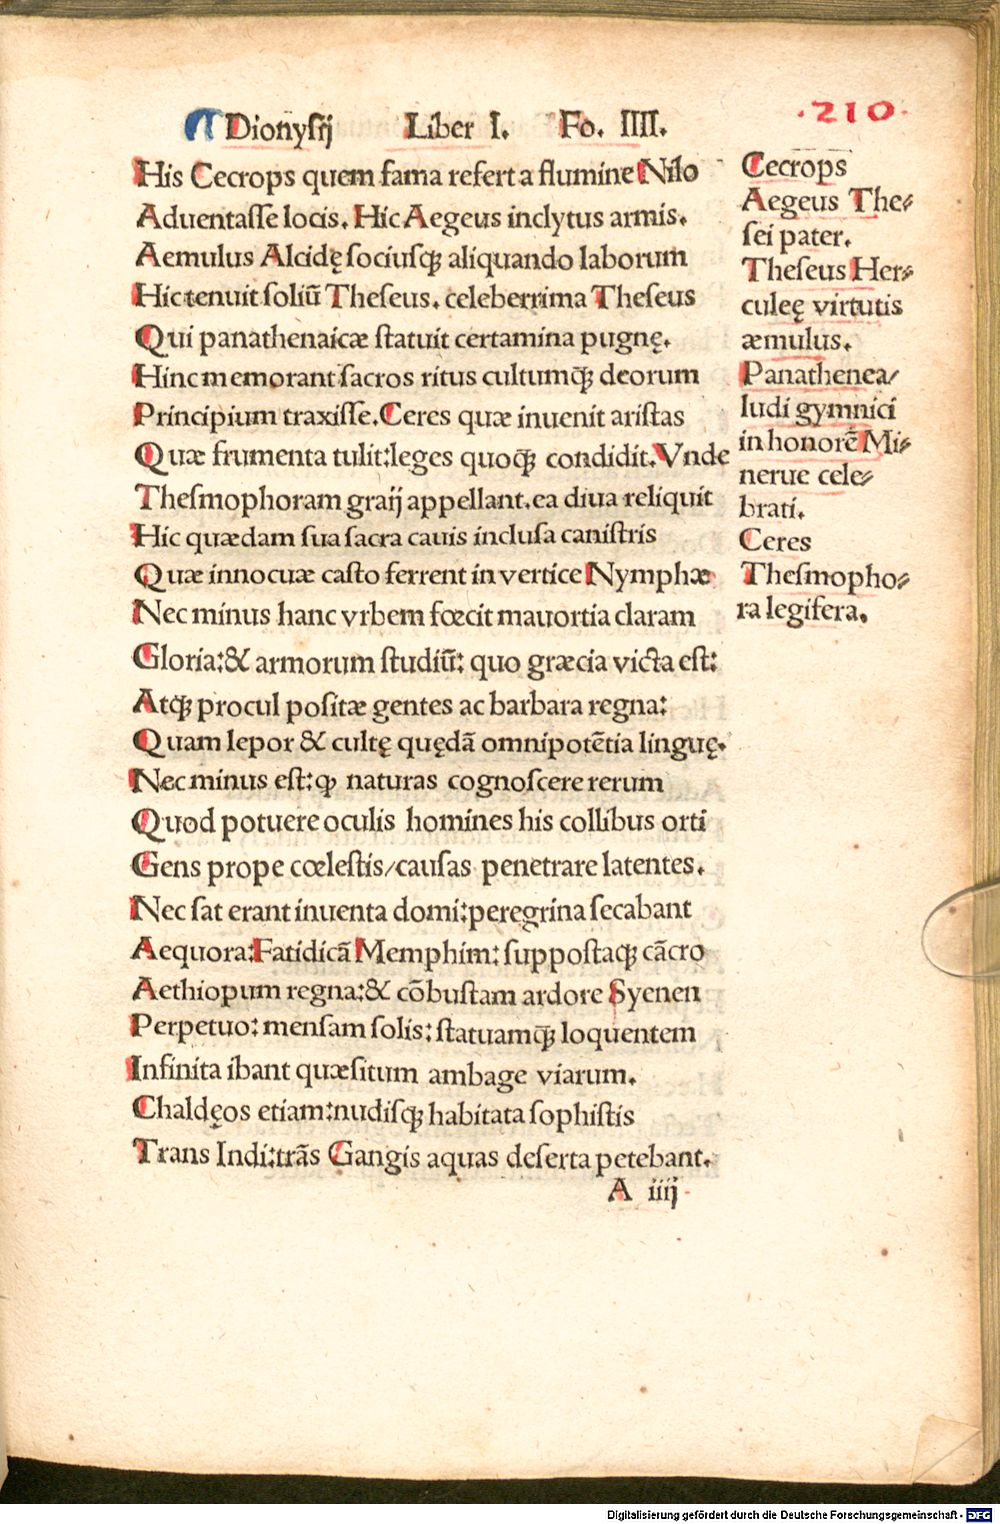 Dionysij Liber I. Fo. IIII.
·210·
His Cecrops quem fama refert a flumine Nilo
Aduentaſſe locis. Hic Aegeus inclytus armis.
Aemulus Alcidę ſociuſqꝫ aliquando laborum
Hic tenuit ſoliū Theſeus. celeberrima Theſeus
Qui panathenaicæ ſtatuit certamina pugnę.
Hinc memorant ſacros ritus cultumqꝫ deorum
Principium traxiſſe. Ceres quæ inuenit ariſtas
Quæ frumenta tulit: leges quoqꝫ condidit. Vnde
Theſmophoram graij appellant. ea diua reliquit
Hic quædam sua ſacra cauis incluſa caniſtris
Quæ innocuæ caſto ferrent in vertice Nymphæ
Nec minus hanc vrbem fœcit mauortia claram
Gloria: & armorum ſtudiū: quo græcia victa eſt:
Atqꝫ procul poſitæ gentes ac barbara regna:
Quam lepor & cultę quędā omnipotētia linguę.
Nec minus eſt: ꝙ naturas cognoſcere rerum
Quod potuere oculis homines his collibus orti
Gens prope cœleſtis/ cauſas penetrare latentes.
Nec ſat erant inuenta domi: peregrina ſecabant
Aequora: Fatidicā Memphim: ſuppoſtaqꝫ cācro
Aethiopum regna: & cōbuſtam ardore Syenen
Perpetuo: menſam ſolis: ſtatuamqꝫ loquentem
Infinita ibant quæſitum ambage viarum.
Chaldęos etiam: nudiſqꝫ habitata ſophiſtis
Trans Indi: trās Gangis aquas deſerta petebant.
A iiij
Cecrops
Aegeus The⸗
ſei pater.
Theſeus Her⸗
culeę virtutis
æmulus.
Panathenea/
ludi gymnici
in honorē Mi⸗
nerue cele⸗
brati.
Ceres
Theſmopho⸗
ra legifera.
Digitalisierung gefördert durch die Deutsche Forschungsgemeinschaft - DFG